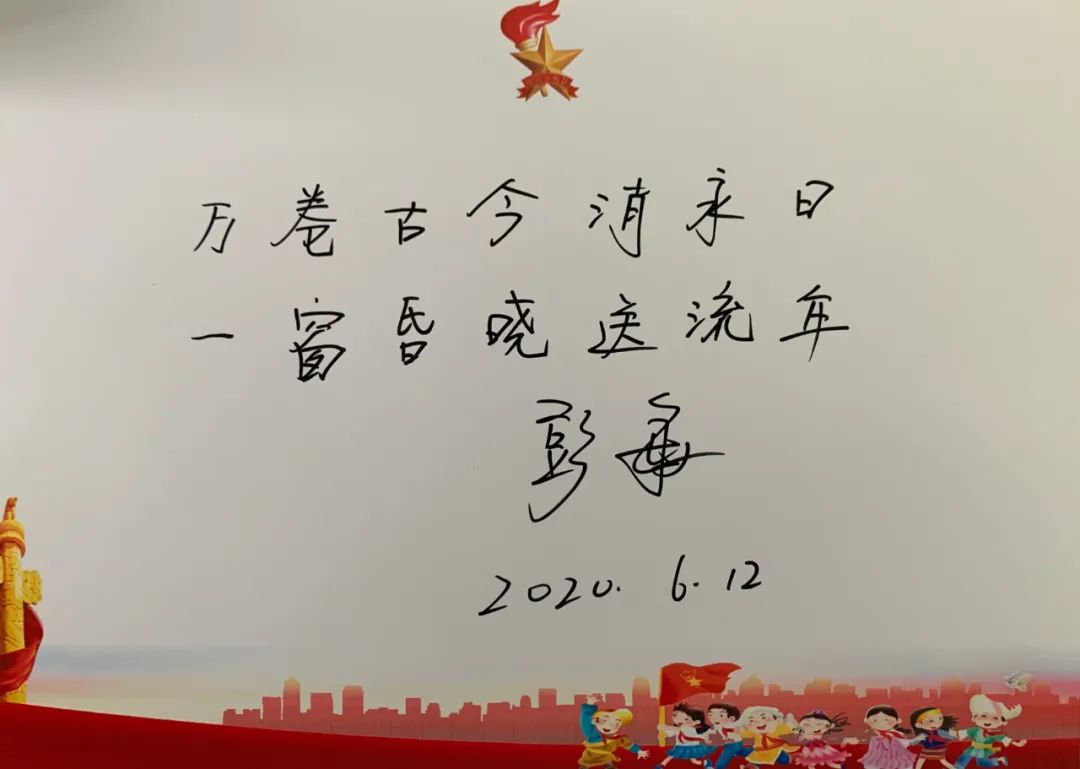 万卷古今消永日
一窗昏晓送流年
彭
2020.6.12